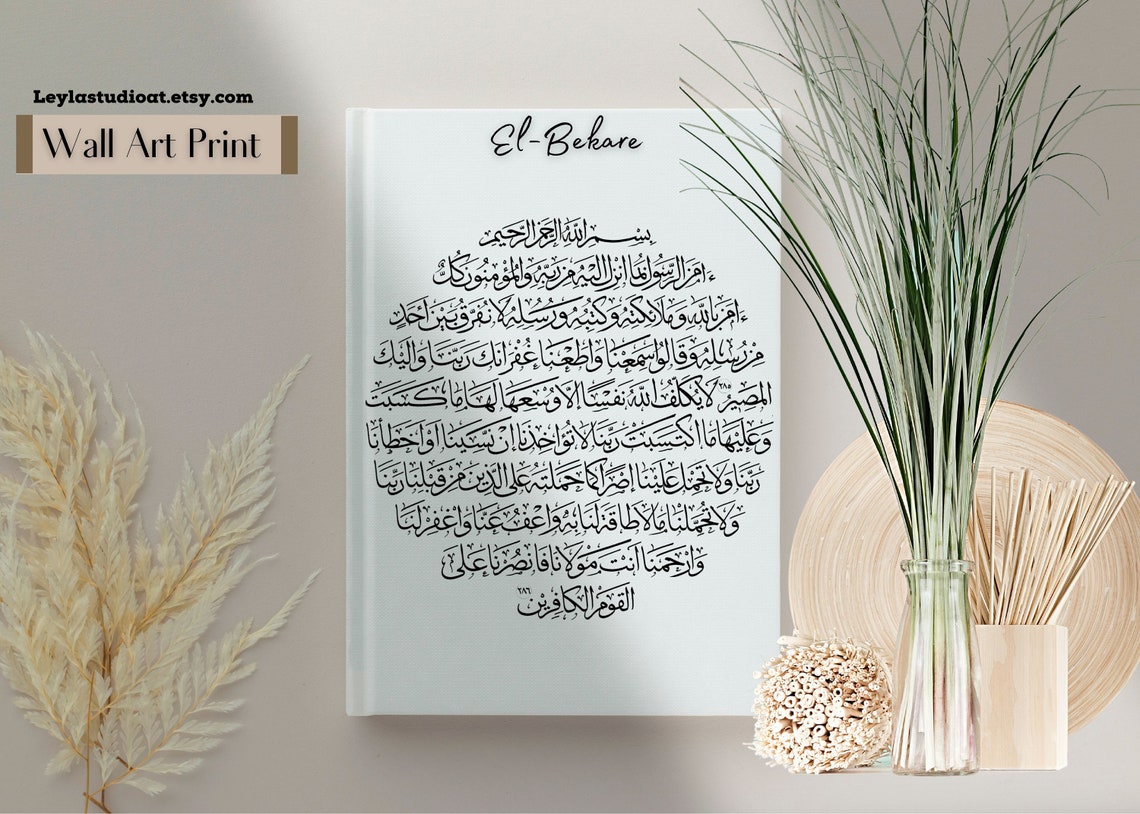 Leylastudioat.etsy.com
Wall Art Print
El-Bekare
بِسْمِ اللَّهِ الرَّحْمَنِ الرَّحِيمِ
ءَامَنَ الرَّسُولُ بِمَا أُنْزِلَ إِلَيْهِ مِنْ رَبِّهِ وَالْمُؤْمِنُونَ كُلٌّ
ءَامَنَ بِاللَّهِ وَمَلَائِكَتِهِ وَكُتُبِهِ وَرُسُلِهِ لَا نُفَرِّقُ بَيْنَ أَحَدٍ
مِنْ رُسُلِهِ وَقَالُوا سَمِعْنَا وَأَطَعْنَا غُفْرَانَكَ رَبَّنَا وَإِلَيْكَ
الْمَصِيرُ ٢٨٥ لَا يُكَلِّفُ اللَّهُ نَفْسًا إِلَّا وُسْعَهَا لَهَا مَا كَسَبَتْ
وَعَلَيْهَا مَا اكْتَسَبَتْ رَبَّنَا لَا تُؤَاخِذْنَا إِنْ نَسِينَا أَوْ أَخْطَأْنَا
رَبَّنَا وَلَا تَحْمِلْ عَلَيْنَا إِصْرًا كَمَا حَمَلْتَهُ عَلَى الَّذِينَ مِنْ قَبْلِنَا رَبَّنَا
وَلَا تُحَمِّلْنَا مَا لَا طَاقَةَ لَنَا بِهِ وَاعْفُ عَنَّا وَاغْفِرْ لَنَا
وَارْحَمْنَا أَنْتَ مَوْلَانَا فَانْصُرْنَا عَلَى
الْقَوْمِ الْكَافِرِينَ ٢٨٦